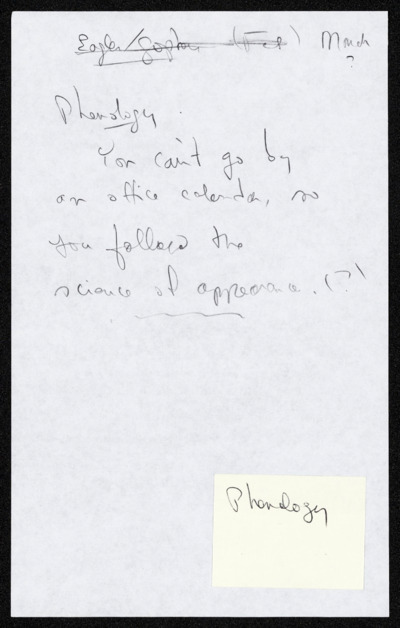 Eagles/Gopher (Feb) March
?
Phenology.
You can't go by
an office calendar, so
you follow the
science of appearance. (?)
Phenology